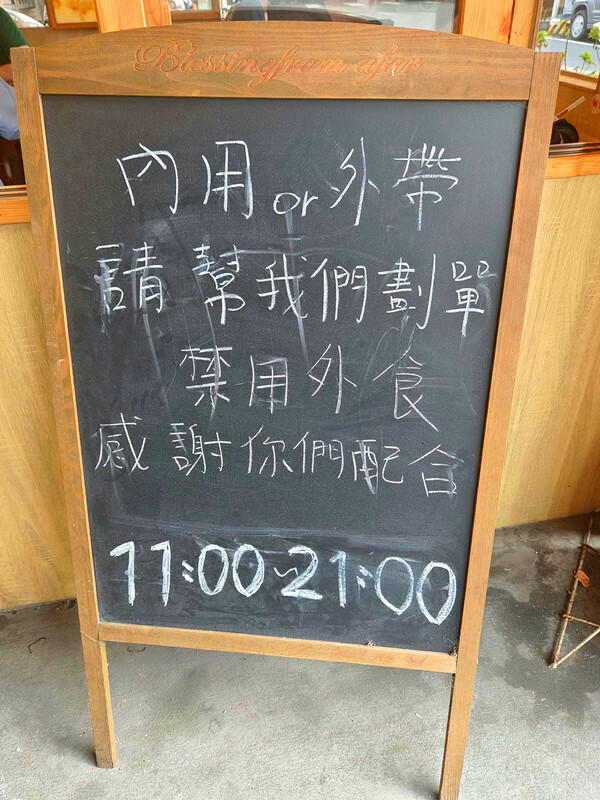 Blessingfrom afar
內用or外帶
請幫我們劃單
禁用外食
感謝你們配合
11:00~21:00